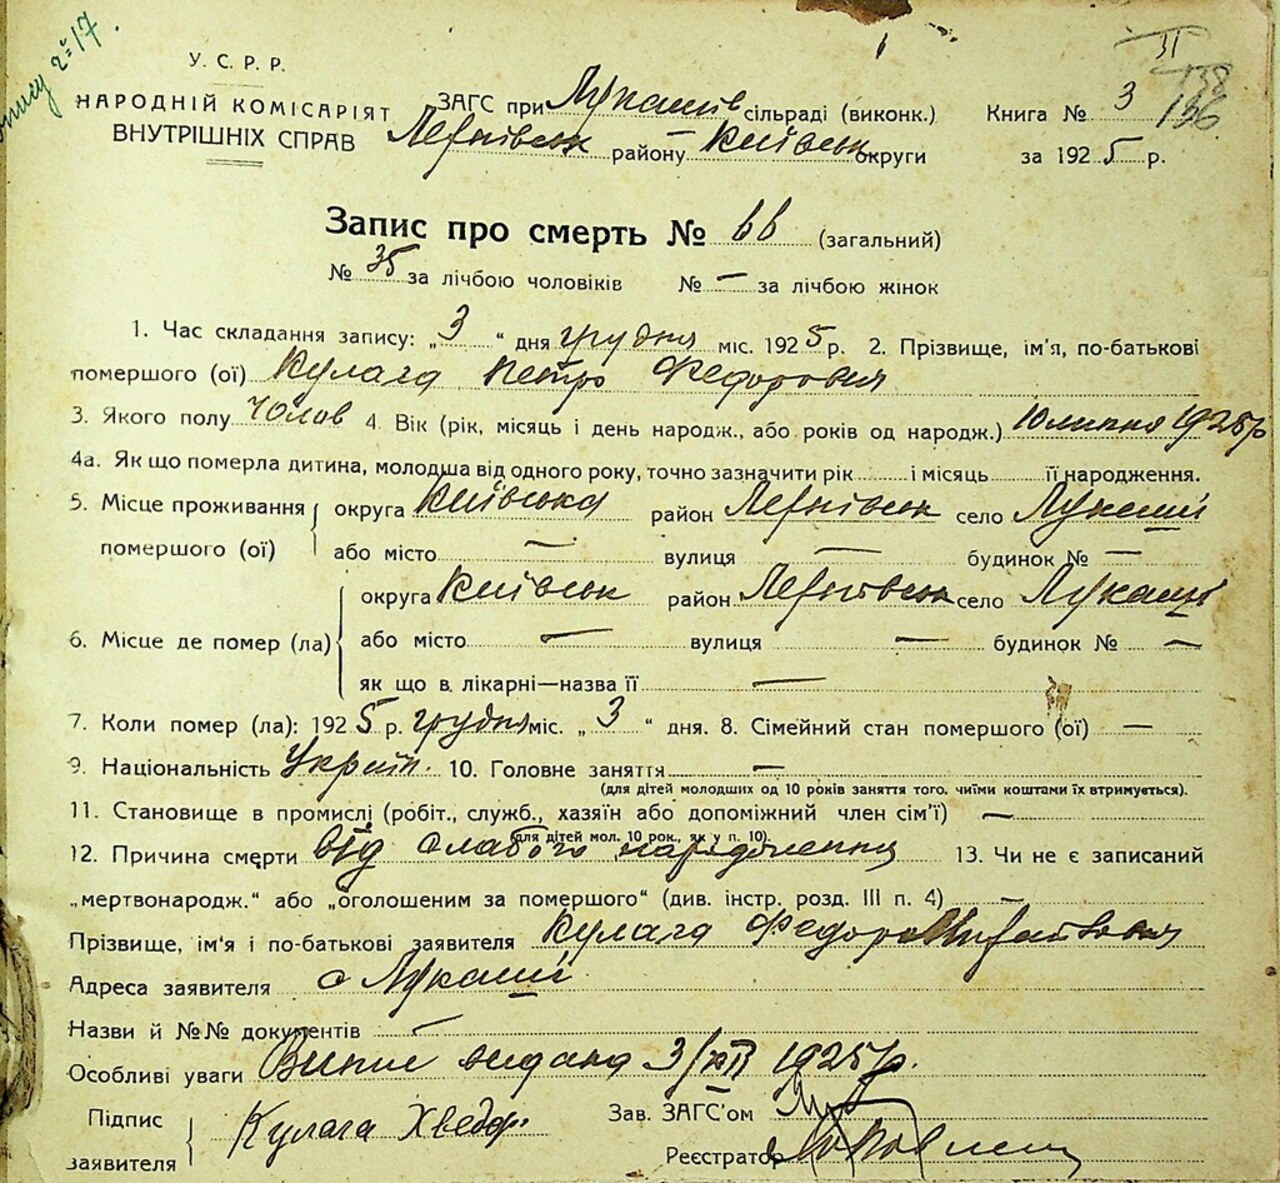 опису 2 № 17.
II
138
136
У. С. Р. Р.
НАРОДНІЙ КОМІСАРІЯТ
ВНУТРІШНІХ СПРАВ
ЗАГС при Лукашів сільраді (виконк.)
району Київськ округи
Книга № 3
за 1925 р.
Запис про смерть № 66 (загальний)
№ 35 за лічбою чоловіків № — за лічбою жінок
1. Час складання запису: „3“ дня грудня міс. 1925 р. 2. Прізвище, ім'я, по-батькові
помершого (ої) Кулага Петро Федорович
3. Якого полу чолов 4. Вік (рік, місяць і день народж., або років од народж.) 10 липня 1925 р
4а. Як що померла дитина, молодша від одного року, точно зазначити рік і місяць її народження.
5. Місце проживання помершого (ої) округа Київська район село Лукаші
або місто — вулиця — будинок № —
6. Місце де помер (ла) округа Київськ район село Лукаші
або місто — вулиця — будинок № —
як що в лікарні—назва її —
7. Коли помер (ла): 1925 р. грудня міс. „3“ дня. 8. Сімейний стан помершого (ої) —
9. Національність Україн. 10. Головне заняття —
(для дітей молодших од 10 років заняття того, чиїми коштами їх втримується).
11. Становище в промислі (робіт., служб., хазяїн або допоміжний член сім'ї) —
(для дітей мол. 10 рок., як у п. 10).
12. Причина смерти від слабого народження 13. Чи не є записаний
„мертвонародж.“ або „оголошеним за помершого“ (див. інстр. розд. III п. 4) —
Прізвище, ім'я і по-батькові заявителя Кулага Федор
Адреса заявителя с Лукаші
Назви й №№ документів —
Особливі уваги Випис видана 3/XII 1925 р.
Підпис заявителя Кулага Хведор.
Зав. ЗАГС'ом
Реєстратор